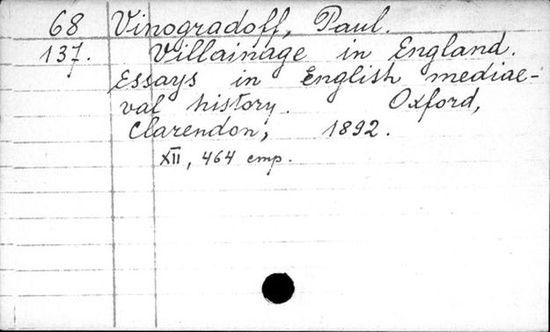 68 Vinogradoff, Paul.
137. Villainage in England.
Essays in English mediae-
val history. Oxford,
Clarendon, 1892.
XII, 464 cmp.